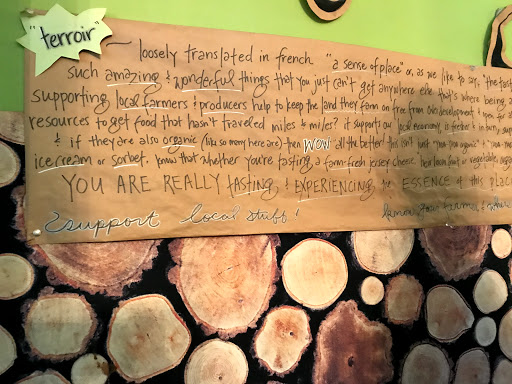 "terroir"
— loosely translated in french "a sense of place" or, as we like to say, "the taste
such amazing & wonderful things that you just can't get anywhere else that's where being a
supporting local farmers & producers help to keep the land they farm on free from development & open for
resources to get food that hasn't traveled miles & miles? it supports our local economy, is fresher &
& if they are also organic (like so many here are) then WOW all the better! this isn't just
ice cream or sorbet. know that whether you're tasting a farm-fresh jersey cheese, heirloom fruit or vegetable,
YOU ARE REALLY tasting, & EXPERIENCING the ESSENCE of this place
support local stuff!
know your farmer, & where